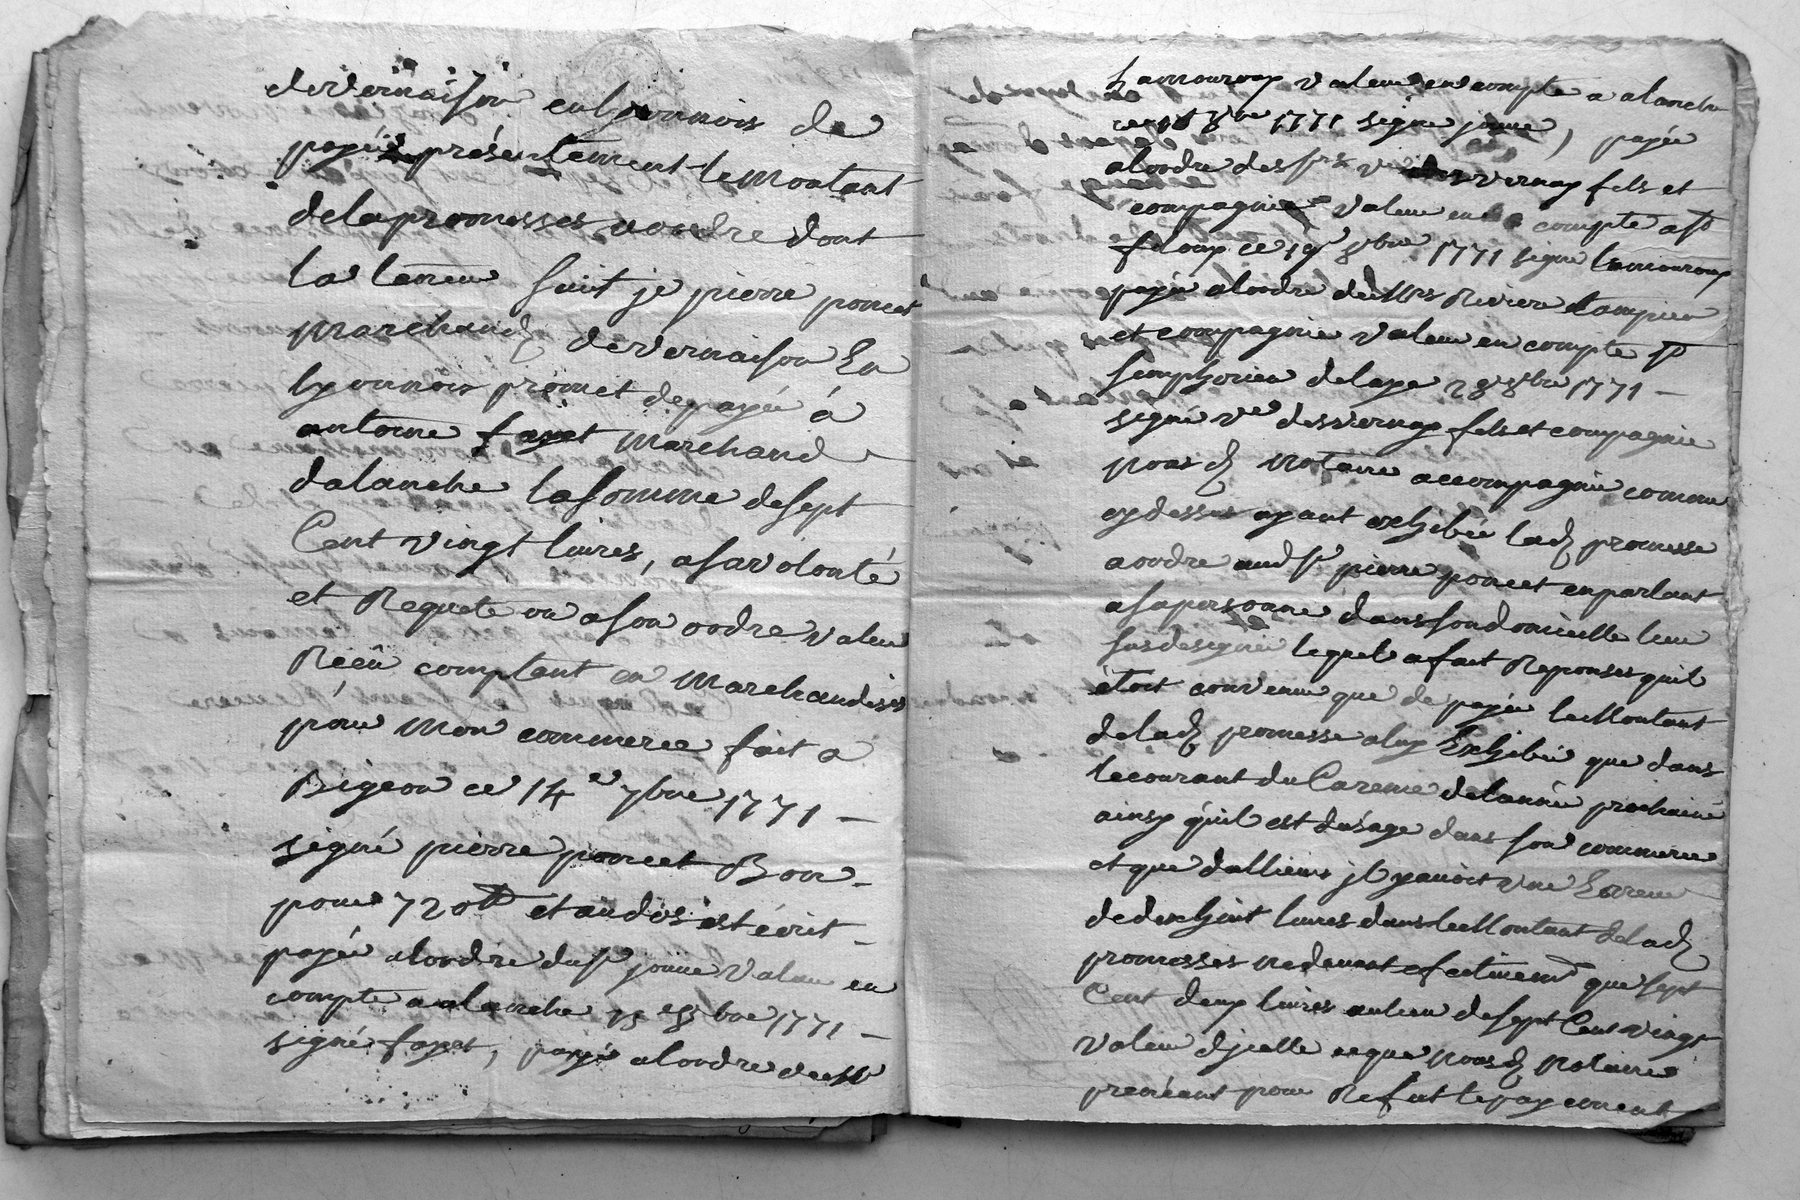 deVernaison en lyonnois de
payér présentement le Montant
delapromesses aordre dont
la teneur suit je pierre poncet
Marchand deVernaison En
lyonnois promet de payée á
antoine fayet Marchand
dalanche la somme desept
Cent vingt livres, asavolonté
et Requete ou ason ordre valeur
Reçü comptant en Marchandises
pour Mon commerce fait a
Bigeon ce 14e 7bre 1771 –
signé pierre poncet Bon –
pour 720tt et audos est écrit –
payée alordre du sr jouve valeur en
compte aalanche 8bre 1771 –
signé fayet, payé alordre de Mr
Lamouroup valeur en compte a alanche
8bre 1771 signé jouve, payée
alordre des srs ve dessvernay fils et
compagnie valeur en compte a st
flour ce 19e 8bre 1771 signé Lamouroup
payé alordre de Mrs Riviere
et compagnie valeur en compte st
simphorien delaye 28 8bre 1771 –
signé Ve dessvernay fils et compagnie
nousd Notaire accompagné comme
cydessus ayant exhibée lad promesse
aordre aud sr pierre poncet en parlant
asapersonne dans son domicille lieu
susdesigné lequel a fait Reponses quil
étoit convenu que de payée le Montant
delad promesse aluy Exhibée que dans
le courant du Careme delannée prochaine
ainsy qúil est dusage dans son commerce
et que dallieurs jl yavoit une Erreur
dedixhuit livres dans le Montant delad
promesses nedevant efectivemt que sept
Cent deux livres aulieu desept Cent vingt
valeur djcelle ceque nousd Notaire
prenéant pour Refut le payement